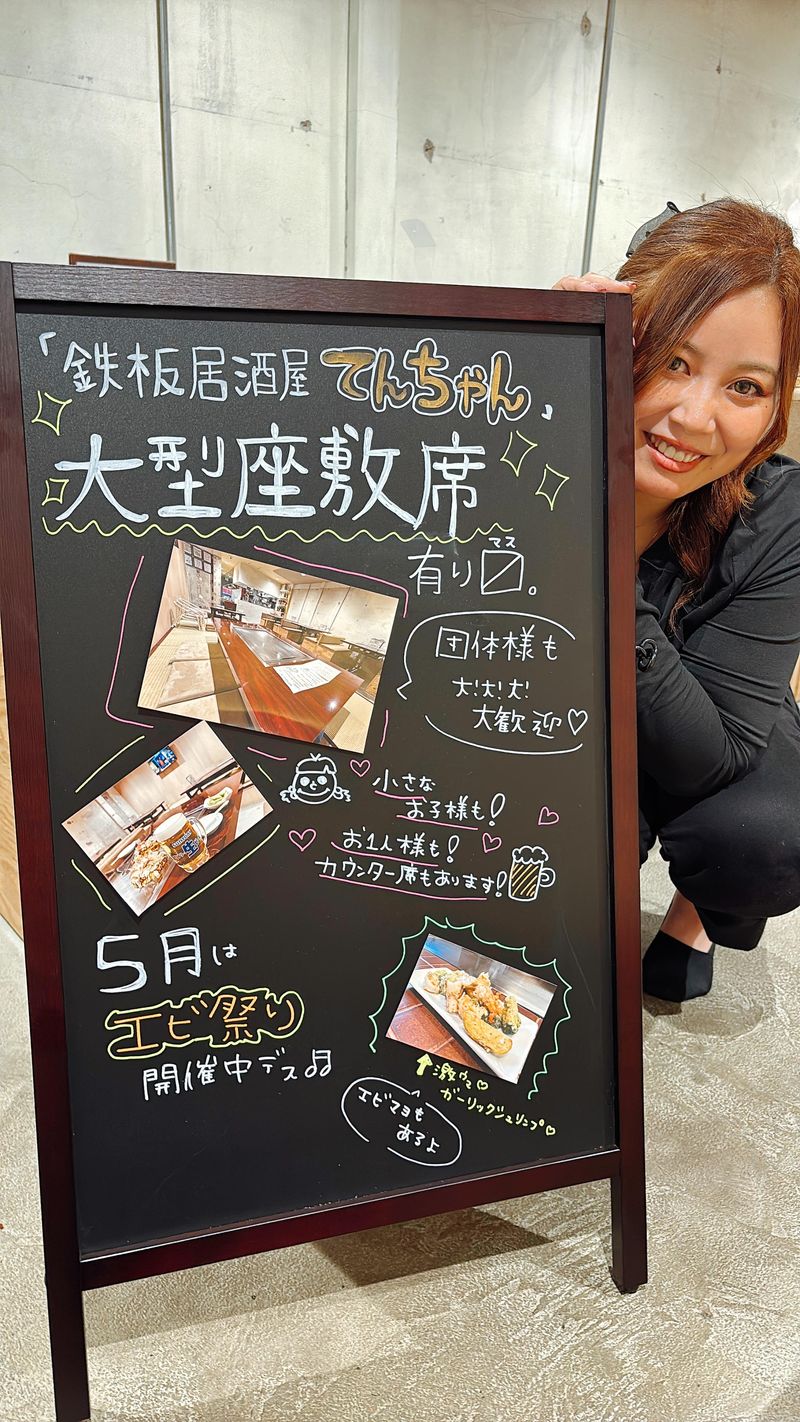 「鉄板居酒屋 てんちゃん」
大型座敷席
有り〼。
マス
団体様も
大!大!大!
大歓迎♡
小さな
お子様も!
お1人様も!
カウンター席もあります!
5月は
エビ祭り
開催中デス♫
↑激ウマ♡
ガーリックシュリンプ♡
エビマヨも
あるよ